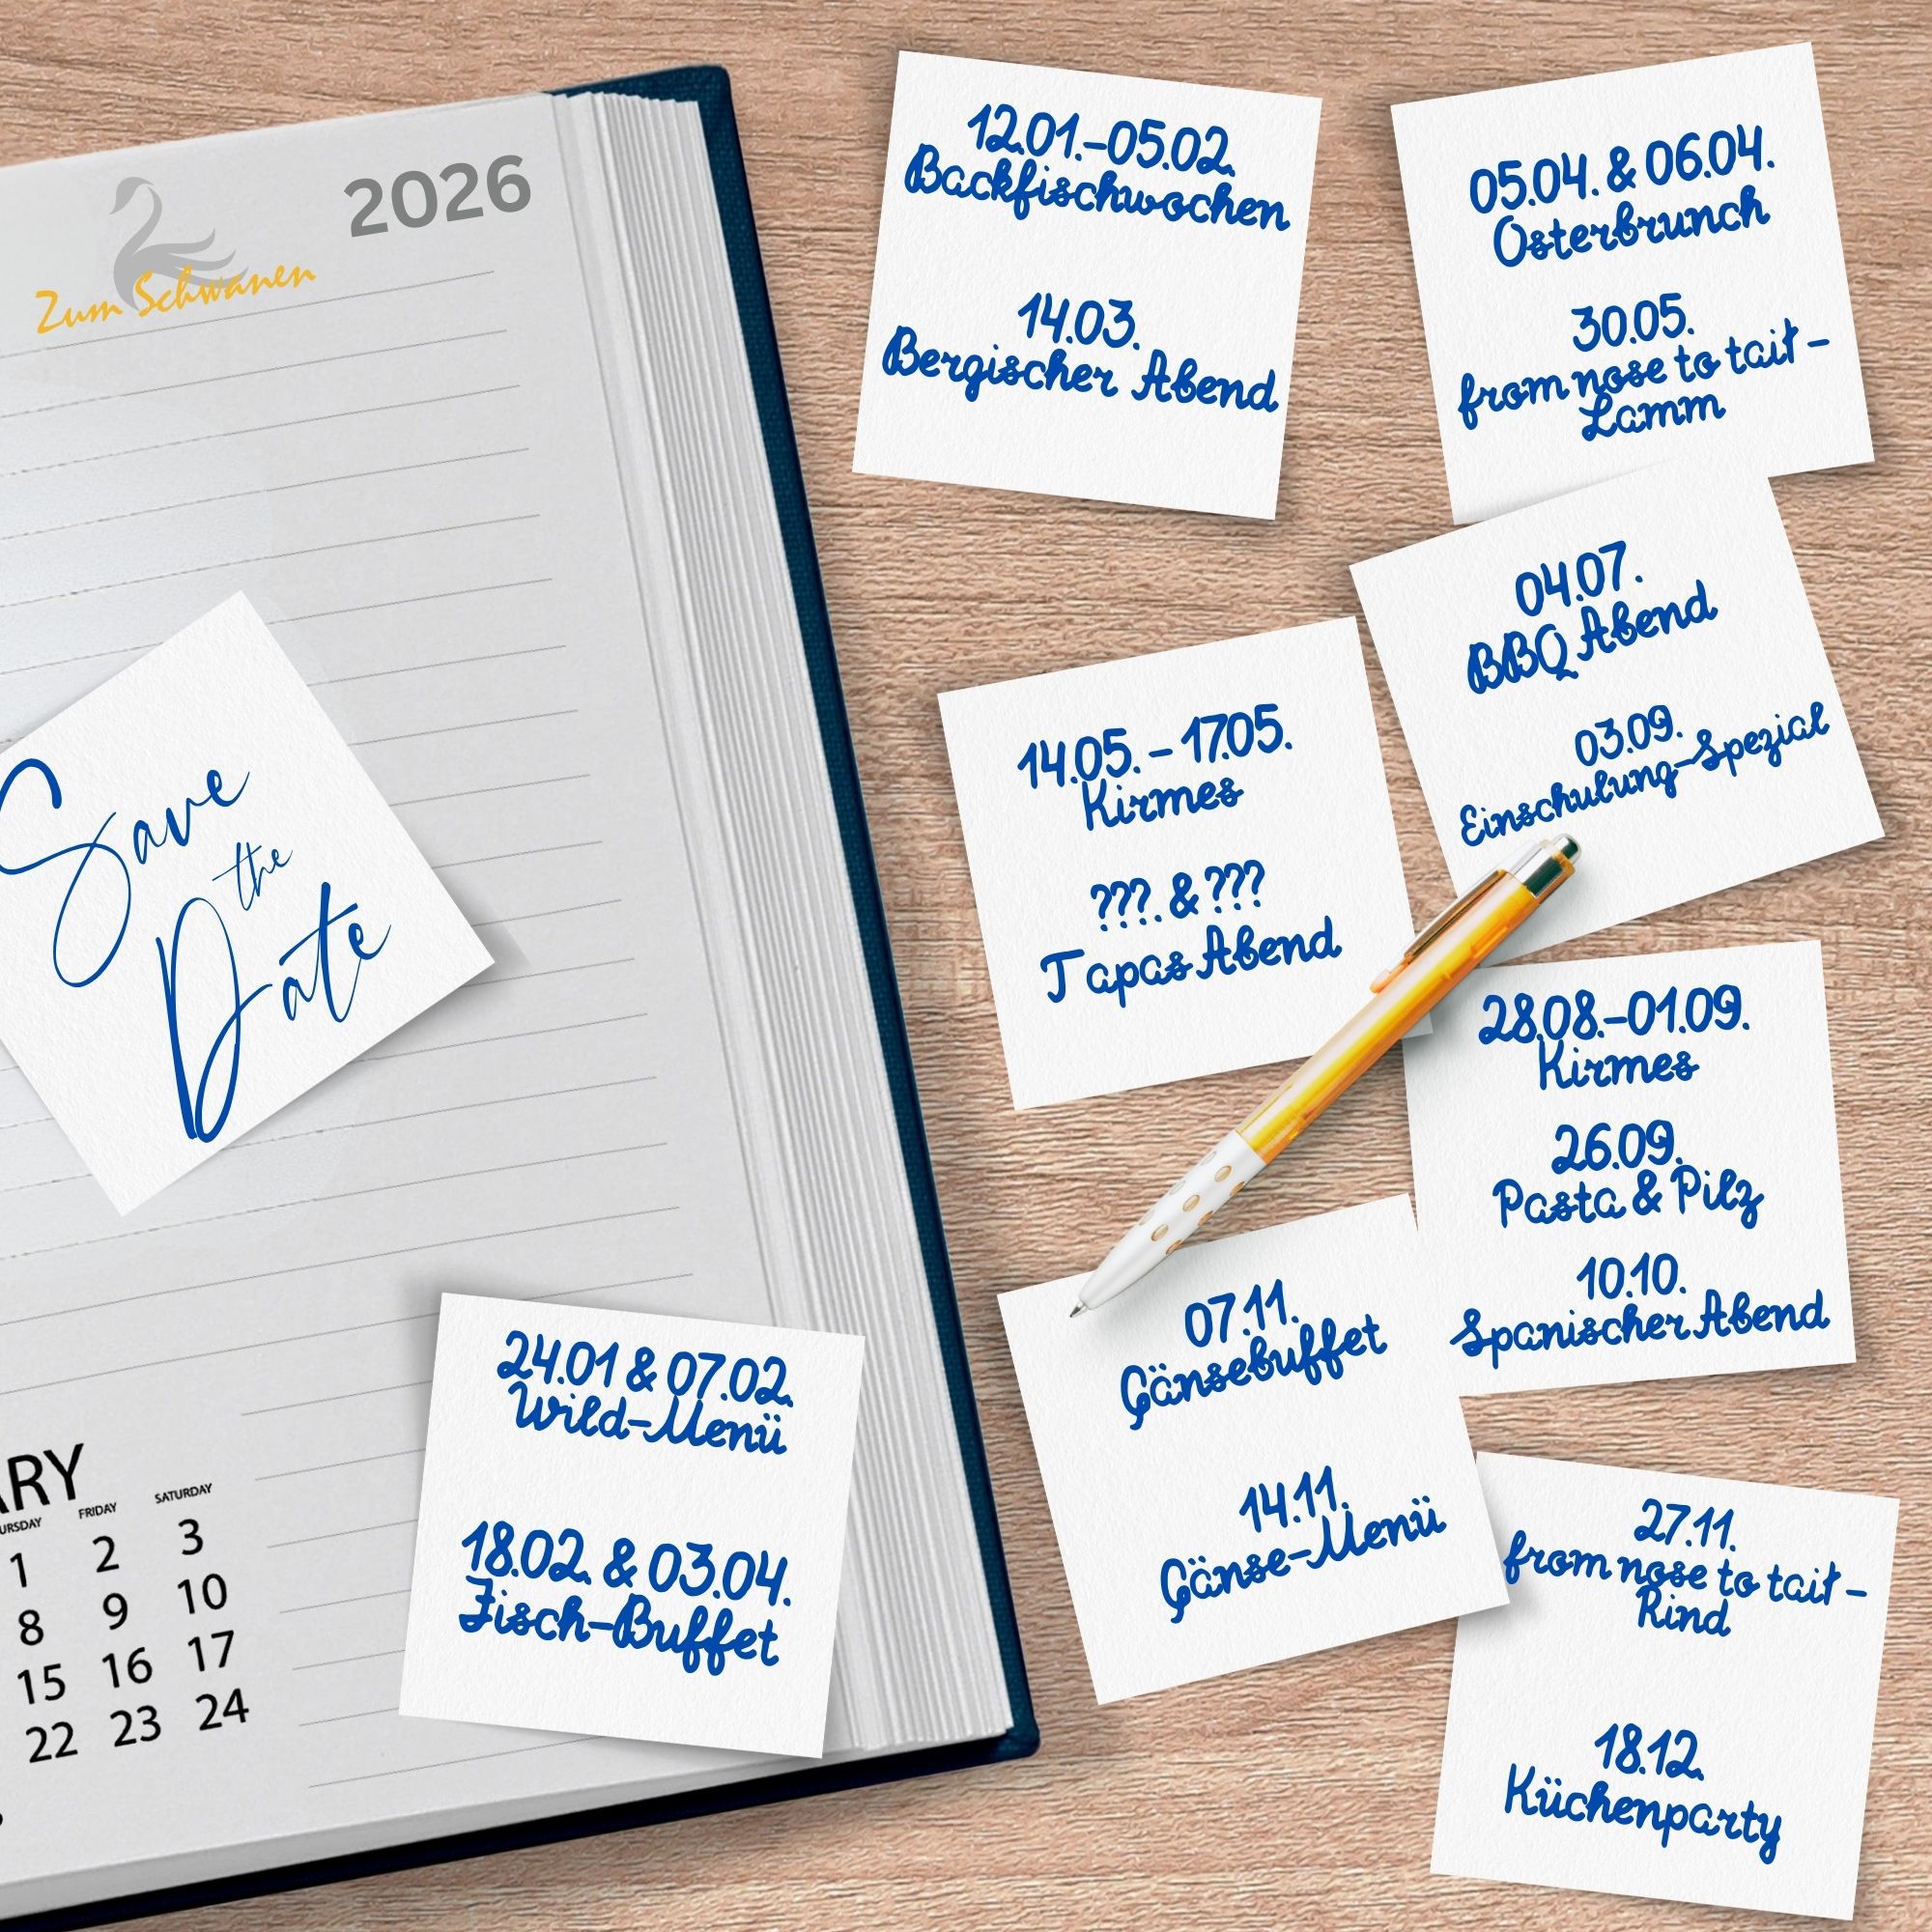 2026
Zum Schwanen
Save
the
Date
ARY
URSDAY FRIDAY SATURDAY
1 2 3
8 9 10
15 16 17
22 23 24
24.01 & 07.02.
Wild-Menü
18.02. & 03.04.
Fisch-Buffet
12.01.-05.02.
Backfischwochen
14.03.
Bergischer Abend
05.04. & 06.04.
Osterbrunch
30.05.
from nose to tail -
Lamm
14.05. - 17.05.
Kirmes
???. & ???
Tapas Abend
04.07.
BBQ Abend
03.09.
Einschulung-Spezial
28.08.-01.09.
Kirmes
26.09.
Pasta & Pilz
10.10.
Spanischer Abend
07.11.
Gänsebuffet
14.11.
Gänse-Menü
27.11.
from nose to tail -
Rind
18.12.
Küchenparty